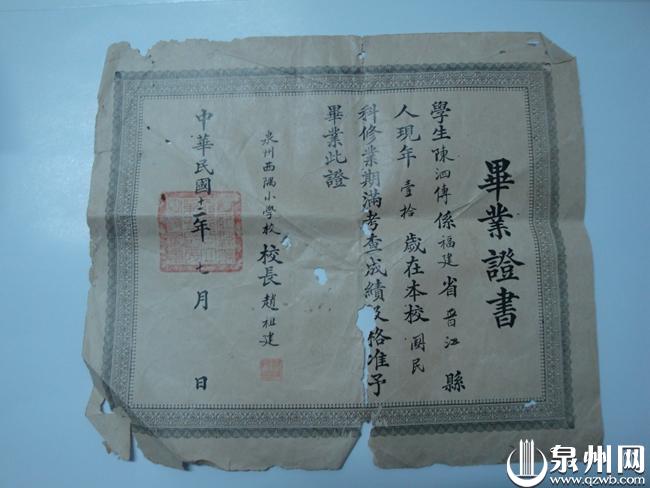 畢業證書
學生陳泗傳係福建省晉江縣
人現年壹拾歲在本校國民
科修業期滿考查成績及格准予
畢業此證
泉州西隅小學校校長趙祖建
中華民國十二年七月 日
泉州网
www.qzwb.com